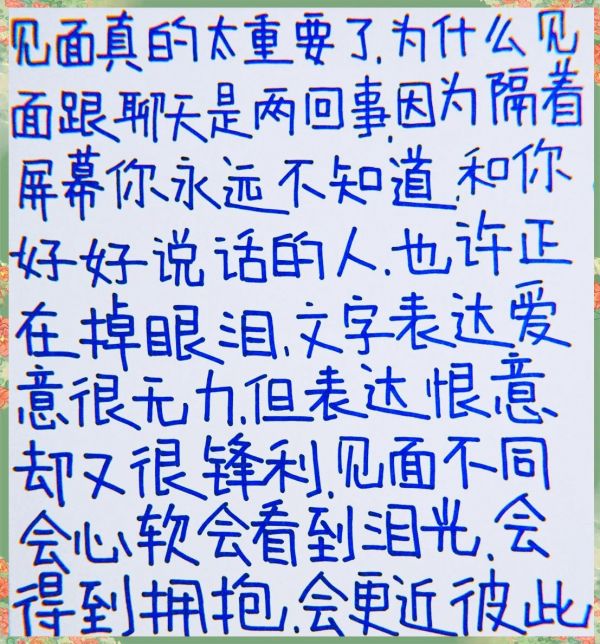 见面真的太重要了,为什么见
面跟聊天是两回事,因为隔着
屏幕你永远不知道,和你
好好说话的人,也许正
在掉眼泪,文字表达爱
意很无力,但表达恨意
却又很锋利,见面不同
会心软会看到泪光,会
得到拥抱,会更近彼此